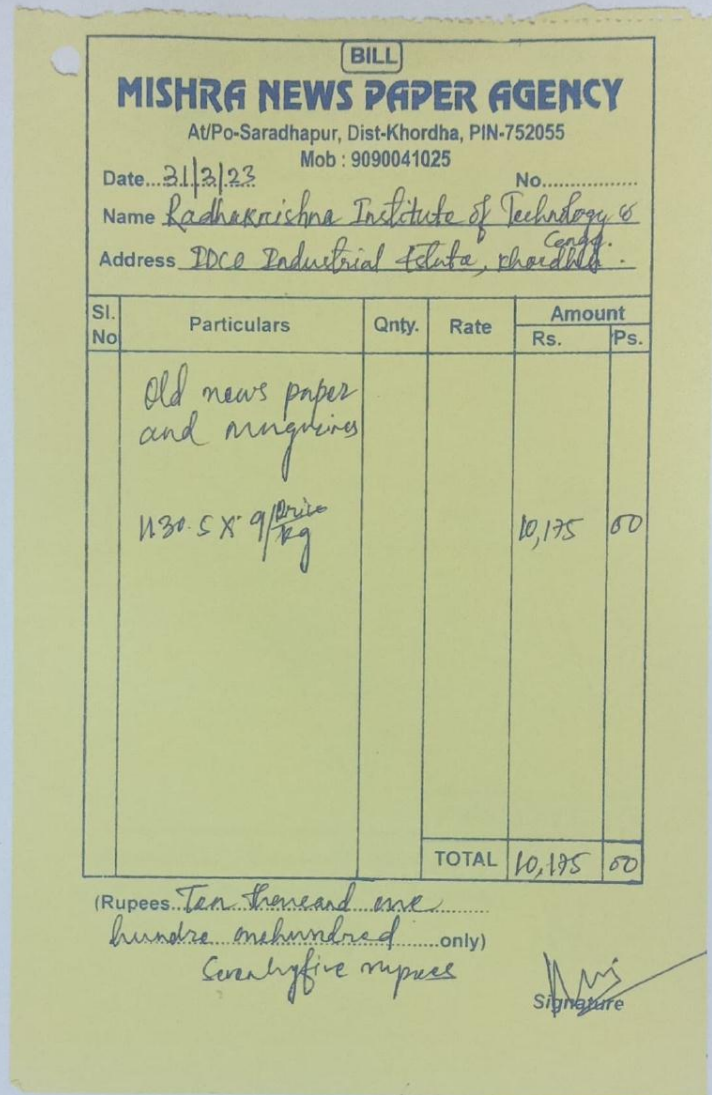 BILL
MISHRA NEWS PAPER AGENCY
At/Po-Saradhapur, Dist-Khordha, PIN-752055
Mob : 9090041025
Date...31/3/23 No.................
Name Radhakrishna Institute of Technology &
Engg.
Address IDCO Industrial Estate, Khordha.
Sl. No Particulars Qnty. Rate Amount Rs. Ps.
Old news paper
and
1130.5 X 9/Price 10,175 00
kg
TOTAL 10,175 00
(Rupees Ten thousand one
hundre onehundred only)
Seventyfive rupees
Signature